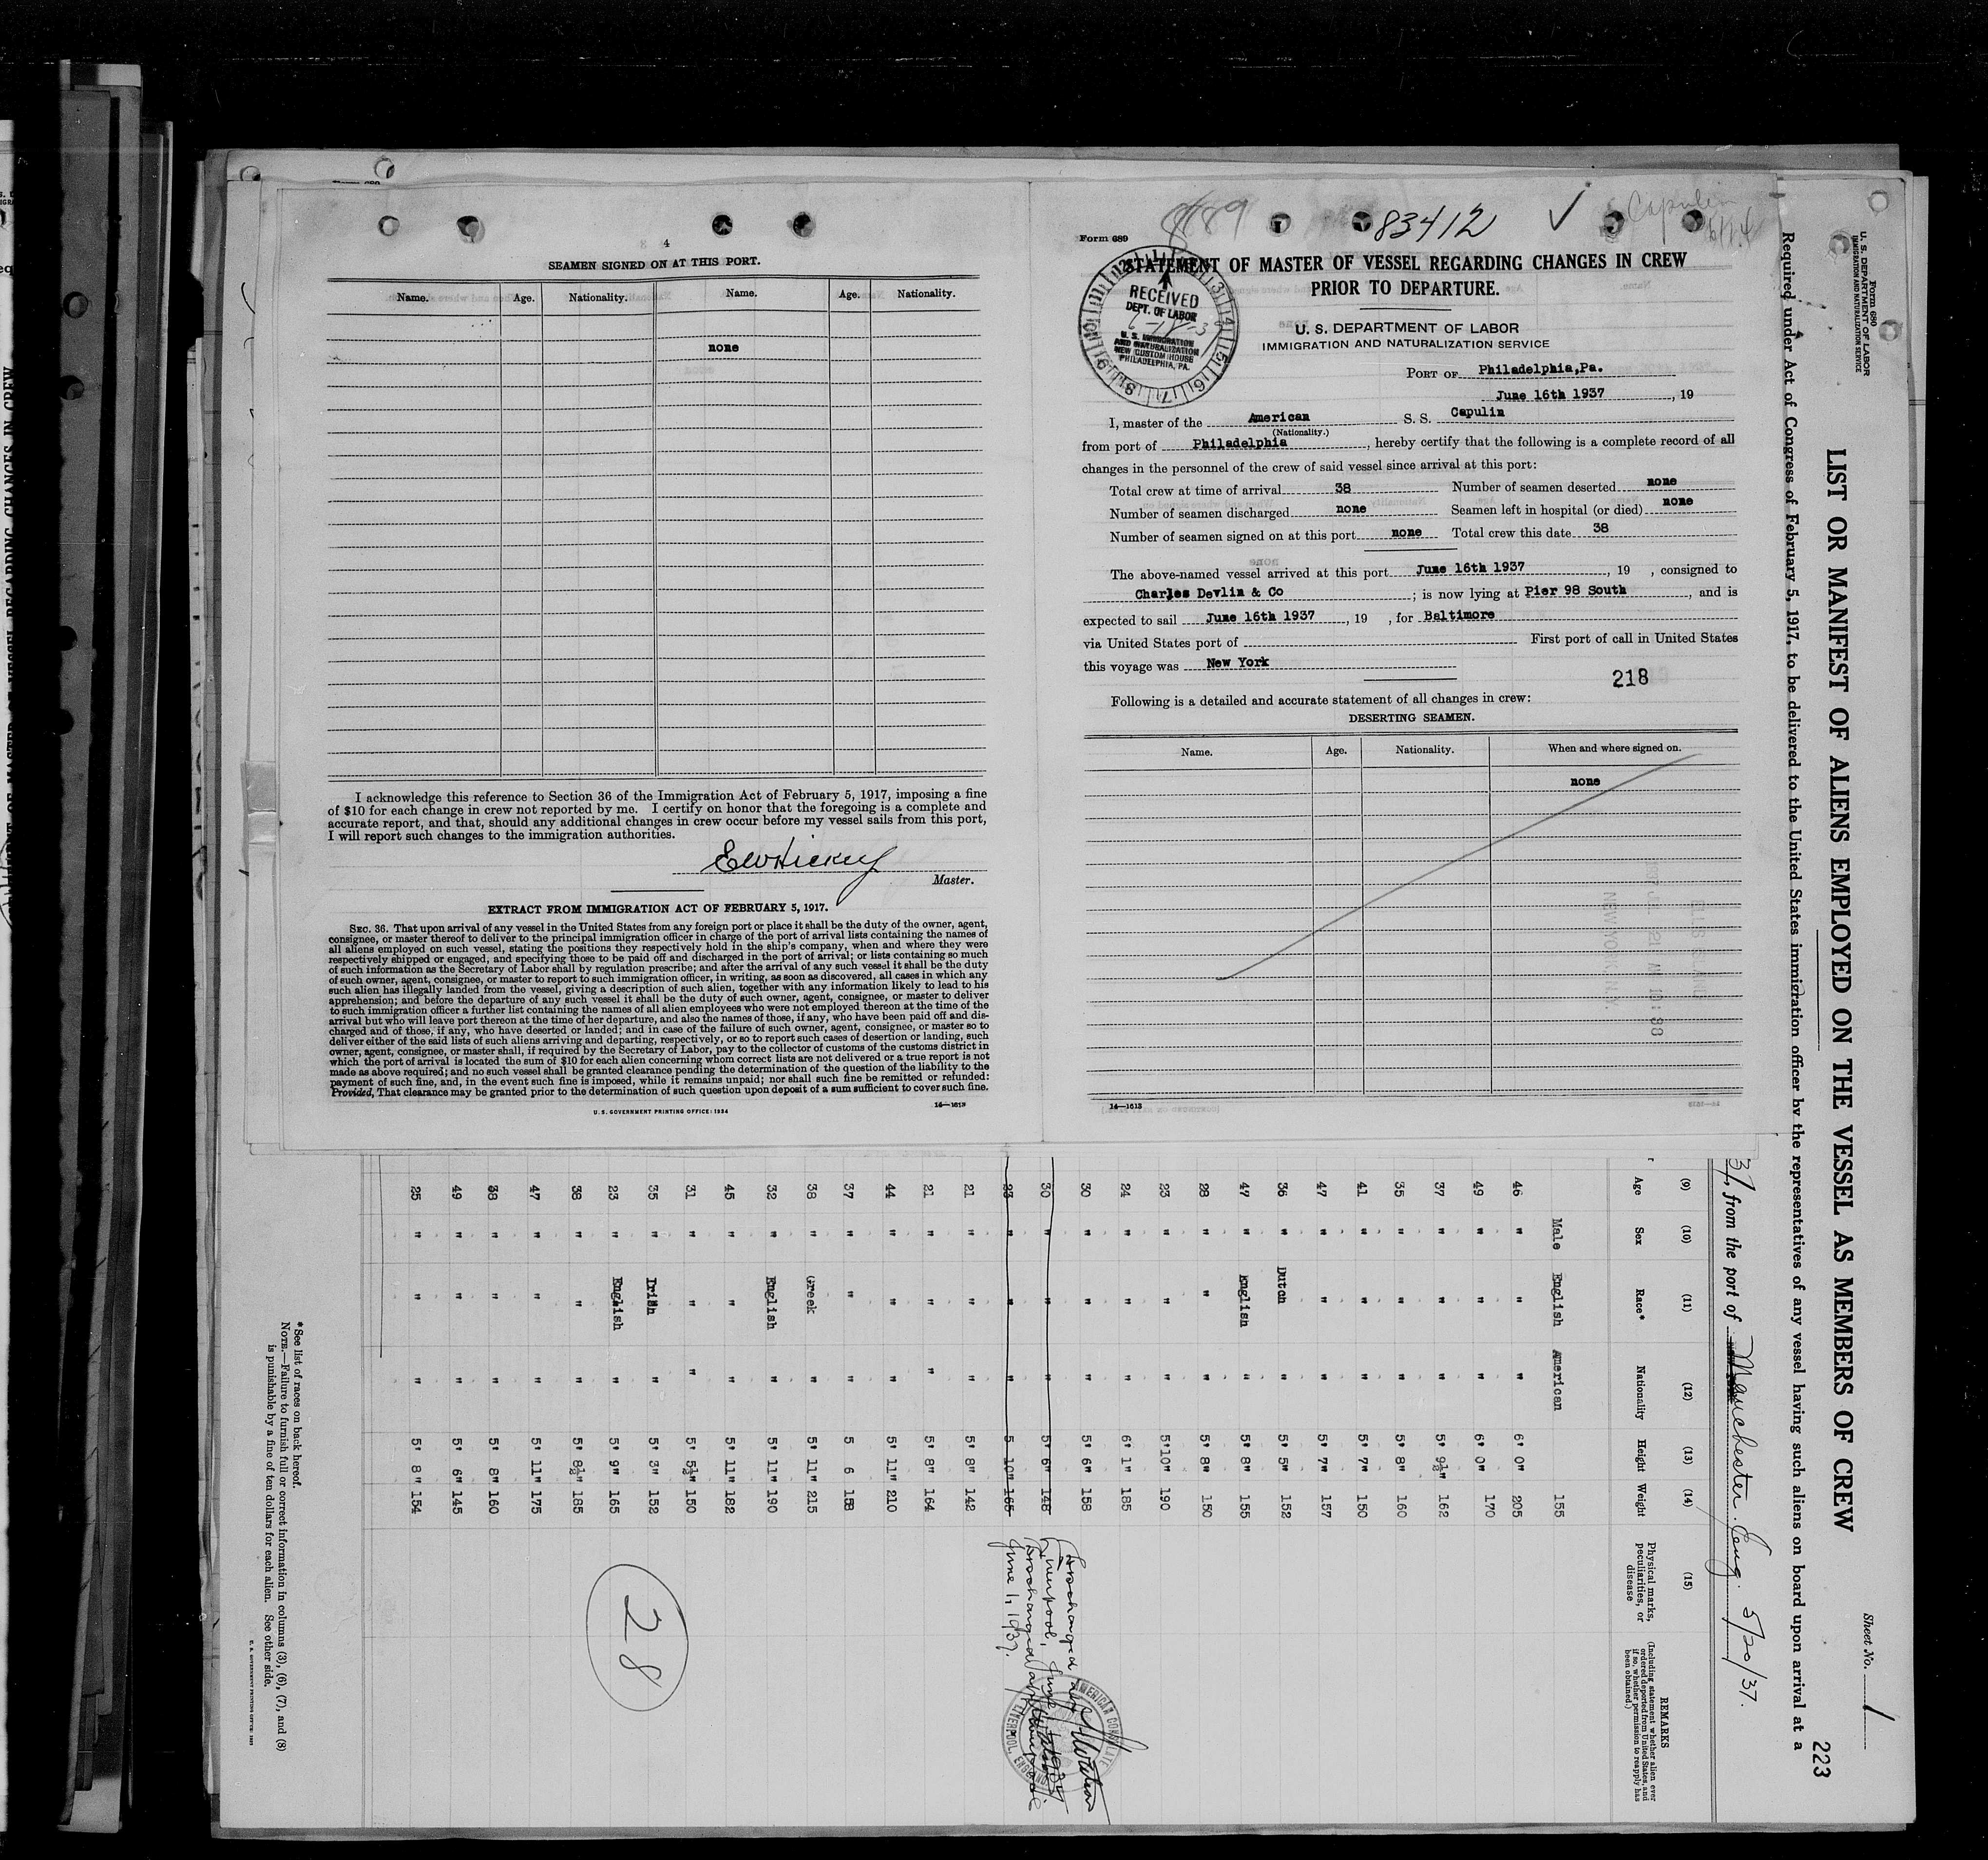 4
SEAMEN SIGNED ON AT THIS PORT.
Name. Age. Nationality. Name. Age. Nationality.
none
I acknowledge this reference to Section 36 of the Immigration Act of February 5, 1917, imposing a fine
of $10 for each change in crew not reported by me. I certify on honor that the foregoing is a complete and
accurate report, and that, should any additional changes in crew occur before my vessel sails from this port,
I will report such changes to the immigration authorities.
E W Hickey
Master.
EXTRACT FROM IMMIGRATION ACT OF FEBRUARY 5, 1917.
SEC. 36. That upon arrival of any vessel in the United States from any foreign port or place it shall be the duty of the owner, agent,
consignee, or master thereof to deliver to the principal immigration officer in charge of the port of arrival lists containing the names of
all aliens employed on such vessel, stating the positions they respectively hold in the ship's company, when and where they were
respectively shipped or engaged, and specifying those to be paid off and discharged in the port of arrival; or lists containing so much
of such information as the Secretary of Labor shall by regulation prescribe; and after the arrival of any such vessel it shall be the duty
of such owner, agent, consignee, or master to report to such immigration officer, in writing, as soon as discovered, all cases in which any
such alien has illegally landed from the vessel, giving a description of such alien, together with any information likely to lead to his
apprehension; and before the departure of any such vessel it shall be the duty of such owner, agent, consignee, or master to deliver
to such immigration officer a further list containing the names of all alien employees who were not employed thereon at the time of the
arrival but who will leave port thereon at the time of her departure, and also the names of those, if any, who have been paid off and dis-
charged and of those, if any, who have deserted or landed; and in case of the failure of such owner, agent, consignee, or master so to
deliver either of the said lists of such aliens arriving and departing, respectively, or so to report such cases of desertion or landing, such
owner, agent, consignee, or master shall, if required by the Secretary of Labor, pay to the collector of customs of the customs district in
which the port of arrival is located the sum of $10 for each alien concerning whom correct lists are not delivered or a true report is not
made as above required; and no such vessel shall be granted clearance pending the determination of the question of the liability to the
payment of such fine, and, in the event such fine is imposed, while it remains unpaid; nor shall such fine be remitted or refunded:
Provided, That clearance may be granted prior to the determination of such question upon deposit of a sum sufficient to cover such fine.
U. S. GOVERNMENT PRINTING OFFICE: 1934 14—1613
83412
Capulin
Form 689
STATEMENT OF MASTER OF VESSEL REGARDING CHANGES IN CREW
PRIOR TO DEPARTURE.
RECEIVED
DEPT. OF LABOR
U. S. IMMIGRATION
AND NATURALIZATION
NEW CUSTOM HOUSE
PHILADELPHIA, PA.
U. S. DEPARTMENT OF LABOR
IMMIGRATION AND NATURALIZATION SERVICE
PORT OF Philadelphia,Pa.
June 16th 1937, 19
I, master of the American S. S. Capulin
(Nationality.)
from port of Philadelphia, hereby certify that the following is a complete record of all
changes in the personnel of the crew of said vessel since arrival at this port:
Total crew at time of arrival 38 Number of seamen deserted none
Number of seamen discharged none Seamen left in hospital (or died) none
Number of seamen signed on at this port none Total crew this date 38
The above-named vessel arrived at this port June 16th 1937, 19 , consigned to
Charles Devlin & Co ; is now lying at Pier 98 South, and is
expected to sail June 16th 1937, 19 , for Baltimore
via United States port of First port of call in United States
this voyage was New York
218
Following is a detailed and accurate statement of all changes in crew:
DESERTING SEAMEN.
Name. Age. Nationality. When and where signed on.
none
14—1613
Form 680
U. S. DEPARTMENT OF LABOR
IMMIGRATION AND NATURALIZATION SERVICE
Sheet No. 1
223
LIST OR MANIFEST OF ALIENS EMPLOYED ON THE VESSEL AS MEMBERS OF CREW
Required under Act of Congress of February 5, 1917, to be delivered to the United States immigration officer by the representatives of any vessel having such aliens on board upon arrival at a
37, from the port of Manchester. Eng. 5/20/37.
(9) (10) (11) (12) (13) (14) (15)
Age Sex Race* Nationality Height Weight Physical marks, peculiarities, or disease
REMARKS
(Including statement whether alien ever
ordered deported from United States, and
if so, whether permission to reapply has
been obtained.)
Male English American 155
46 " " " 6' 0" 205
49 " " " 6' 0" 170
37 " " " 5' 9½" 162
35 " " " 5' 8" 160
41 " " " 5' 7" 150
47 " " " 5' 7" 157
36 " Dutch " 5' 5" 152
47 " English " 5' 8" 155
28 " " " 5' 8" 150
23 " " " 5'10" 190
24 " " " 6' 1" 185
30 " " " 5' 6" 158
30 " " " 5' 6" 148
23 " " " 5 10" 165
21 " " " 5' 8" 142
21 " " " 5' 8" 164
44 " " " 5' 11" 210
37 " " " 5 6 158
38 " Greek " 5' 11" 215
32 " English " 5' 11" 190
45 " " " 5' 11" 182
31 " " " 5' 5½" 150
35 " Irish " 5' 3" 152
23 " English " 5' 9" 165
38 " " " 5' 8½" 185
47 " " " 5' 11" 175
38 " " " 5' 8" 160
49 " " " 5' 6" 145
25 " " " 5' 8" 154
Discharged at
Liverpool, June
Discharged at Liverpool
June 1, 1937.
AMERICAN CONSULATE
LIVERPOOL, ENGLAND
28
* See list of races on back hereof.
NOTE.—Failure to furnish full or correct information in columns (3), (6), (7), and (8)
is punishable by a fine of ten dollars for each alien. See other side.